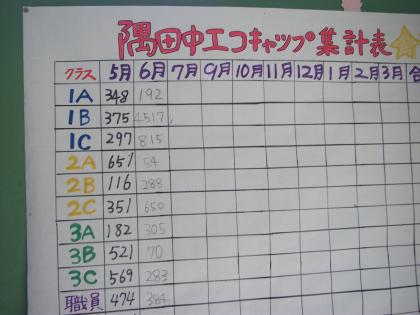 隅田中エコキャップ集計表
クラス 5月 6月 7月 9月 10月 11月 12月 1月 2月 3月 合
1A 348 192
1B 375 4517
1C 297 815
2A 651 54
2B 116 288
2C 351 650
3A 182 305
3B 521 70
3C 569 283
職員 474 384